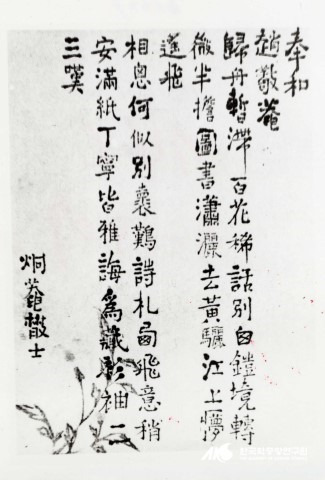 奉和
趙敬菴
歸舟暫滯百花稀話別境轉
微半擔圖書瀟灑去黃驪江上夢
遙飛
相思何似別難詩札飛意稍
安滿紙丁寧皆雅誨爲藏袖二
三嘆
炯菴散士
한국학중앙연구원